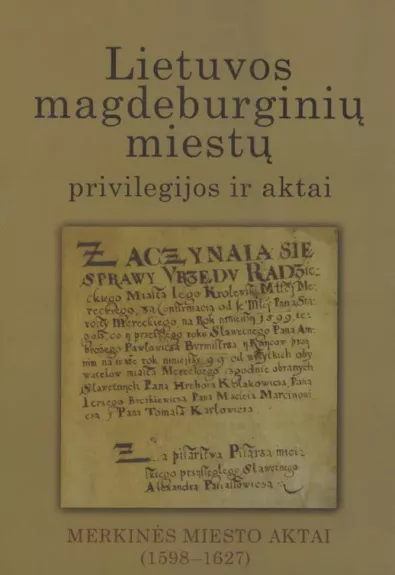 Lietuvos
magdeburginių
miestų
privilegijos ir aktai
ZACZYNAIA SIE
SPRAWY VRZĘDV RADZie-
ckiego Miasta Iego Krolewskiej Msci Me-
reckiego, za Confirmacią od Ie Msci Pana Sta-
rosty Mereckiego na Rok ninieiszy 1599 te-
goż, co y przeszłego roku Sławetnego Pana Am-
brożego Pawłowicza Burmistrza y Raycow przy
nim na tenże rok ninieiszy 99 od wszytkich oby
watelow miasta Mereckiego zgodnie obranych
Sławetnych Pana Hrehora Kołakowicza Pana
Ierzego Pana Macieia Marcinowi
cza y Pana Tomasza Karłowicza
Za pisarstwa Pisarza miei-
skiego przysięgłego Sławetnego
Alexandra
MERKINĖS MIESTO AKTAI
(1598–1627)